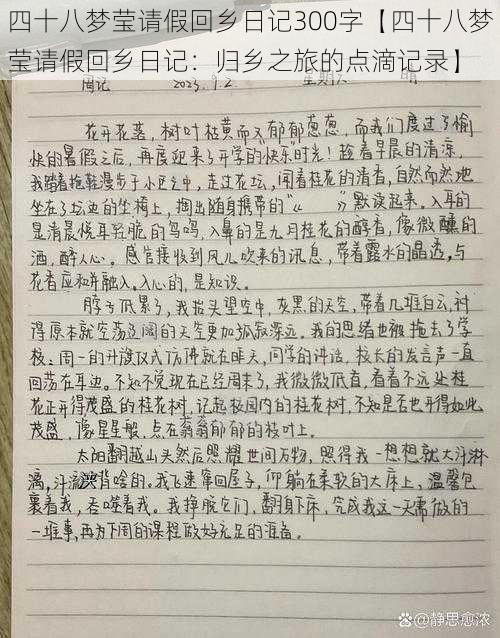 四十八梦莹请假回乡日记300字【四十八梦
莹请假回乡日记：归乡之旅的点滴记录】
周记 2023.9.2 星期六 晴
花开花落，树叶枯黄而又郁郁葱葱，而我们度过了愉
快的暑假之后，再度迎来了开学的“快乐”时光！趁着早晨的清凉，
我踏着拖鞋漫步于小区之中，走过花坛，闻着桂花的清香，自然而然地
坐在了坛边的坐椅上，掏出随身携带的“《 》”默读起来。入耳的
是清晨悦耳轻脆的鸟鸣，入鼻的是九月桂花的醇香，像微醺的
酒，醉人心。感官接收到风儿吹来的讯息，带着露水的晶透，与
花香应和并融入。入心的，是知识。
脖子低累了，我抬头望空中，灰黑的天空，带着几堆白云，衬
得原本就空荡辽阔的天空更加孤寂深远。我的思绪也被拖去了学
校：周一的开旗仪式仿佛就在昨天，同学的讲话，校长的发言声一直
回荡在耳边。不知不觉现在已经周末了，我微微低首，看着不远处桂
花正开得茂盛的桂花树，记起校园内的桂花树，不知是否也开得如此
茂盛，像星星般，点在蓊蓊郁郁的枝叶上。
太阳翻越山头然后照耀世间万物，照得我一想想就大汗淋
漓，汗流浃背啥的。我飞速窜回屋子，仰躺在柔软的大床上，温馨包
裹着我，吞噬着我。我挣脱它们，翻身下床，完成我这一天需做的
一堆事，再为下周的课程做好充足的准备。
@静思愈浓